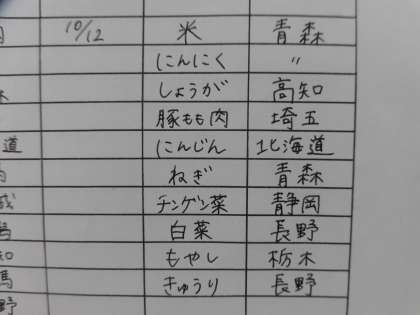 10/12 米 青森
にんにく 〃
しょうが 高知
豚もも肉 埼玉
道 にんじん 北海道
ねぎ 青森
チンゲン菜 静岡
白菜 長野
知 もやし 栃木
馬 きゅうり 長野
野